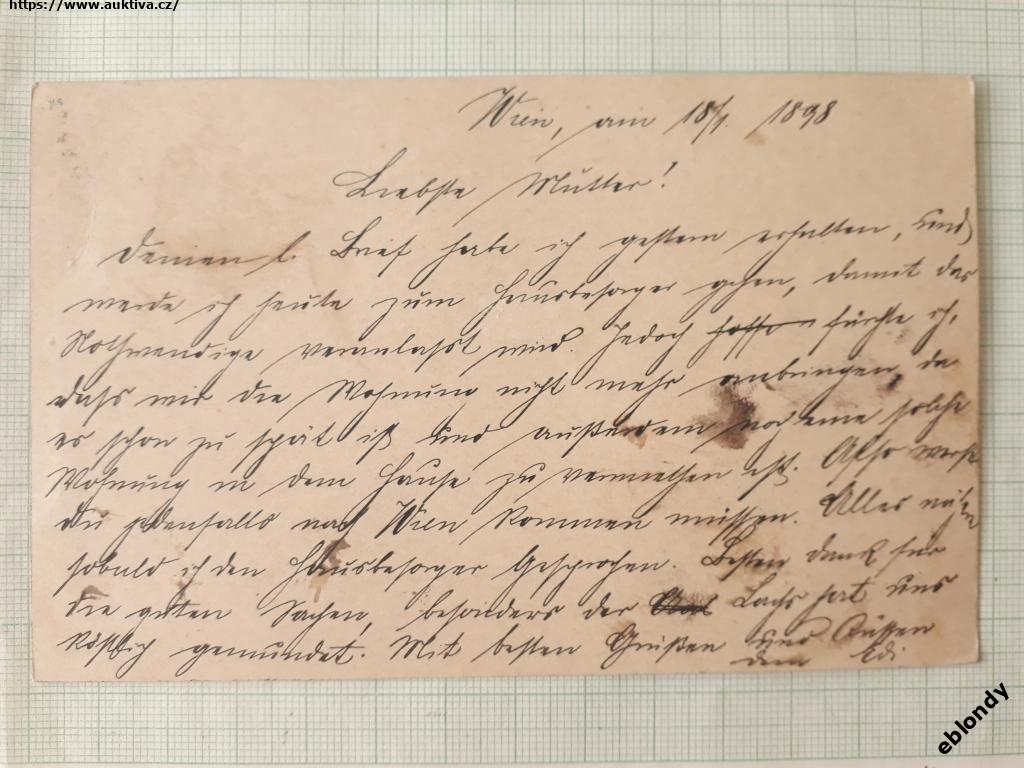 https://www.auktiva.cz/
Wien, am 18/1. 1898
Liebste Mutter!
Deinen l. Brief habe ich gestern erhalten, und
werde ich heute zum Hausbesorger gehen, damit das
Nothwendige veranlasst wird. Jedoch hoffe fürchte ich,
dass wir die Wohnung nicht mehr anbringen, da
es schon zu spät ist und außerdem noch eine solche
Wohnung in dem Hause zu vermiethen ist. Also wirst
Du jedenfalls nach Wien kommen müssen. Alles
sobald ich den Hausbesorger gesprochen. Besten Dank für
die guten Sachen, besonders der Lachs hat uns
köstlich gemundet. Mit besten Grüßen und Küssen
Dein Edi
eblondy